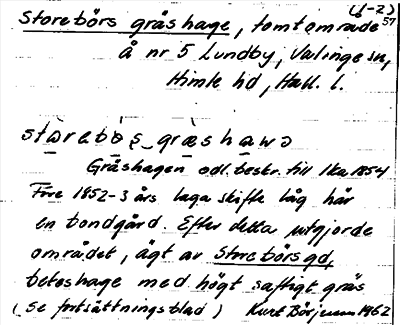 (1-2)
Storebörs gräshage, tomtområde 57
å nr 5 Lundby, Valinge sn,
Himle hd, Hall. l.
starebøs_græshawə
Gräshagen odl.beskr. till lka 1854
Före 1852-3 års laga skifte låg här
en bondgård. Efter detta utgjorde
området, ägt av Storebörsgd,
beteshage med högt saftigt gräs
(se fortsättningsblad) Kurt Börjesson 1962